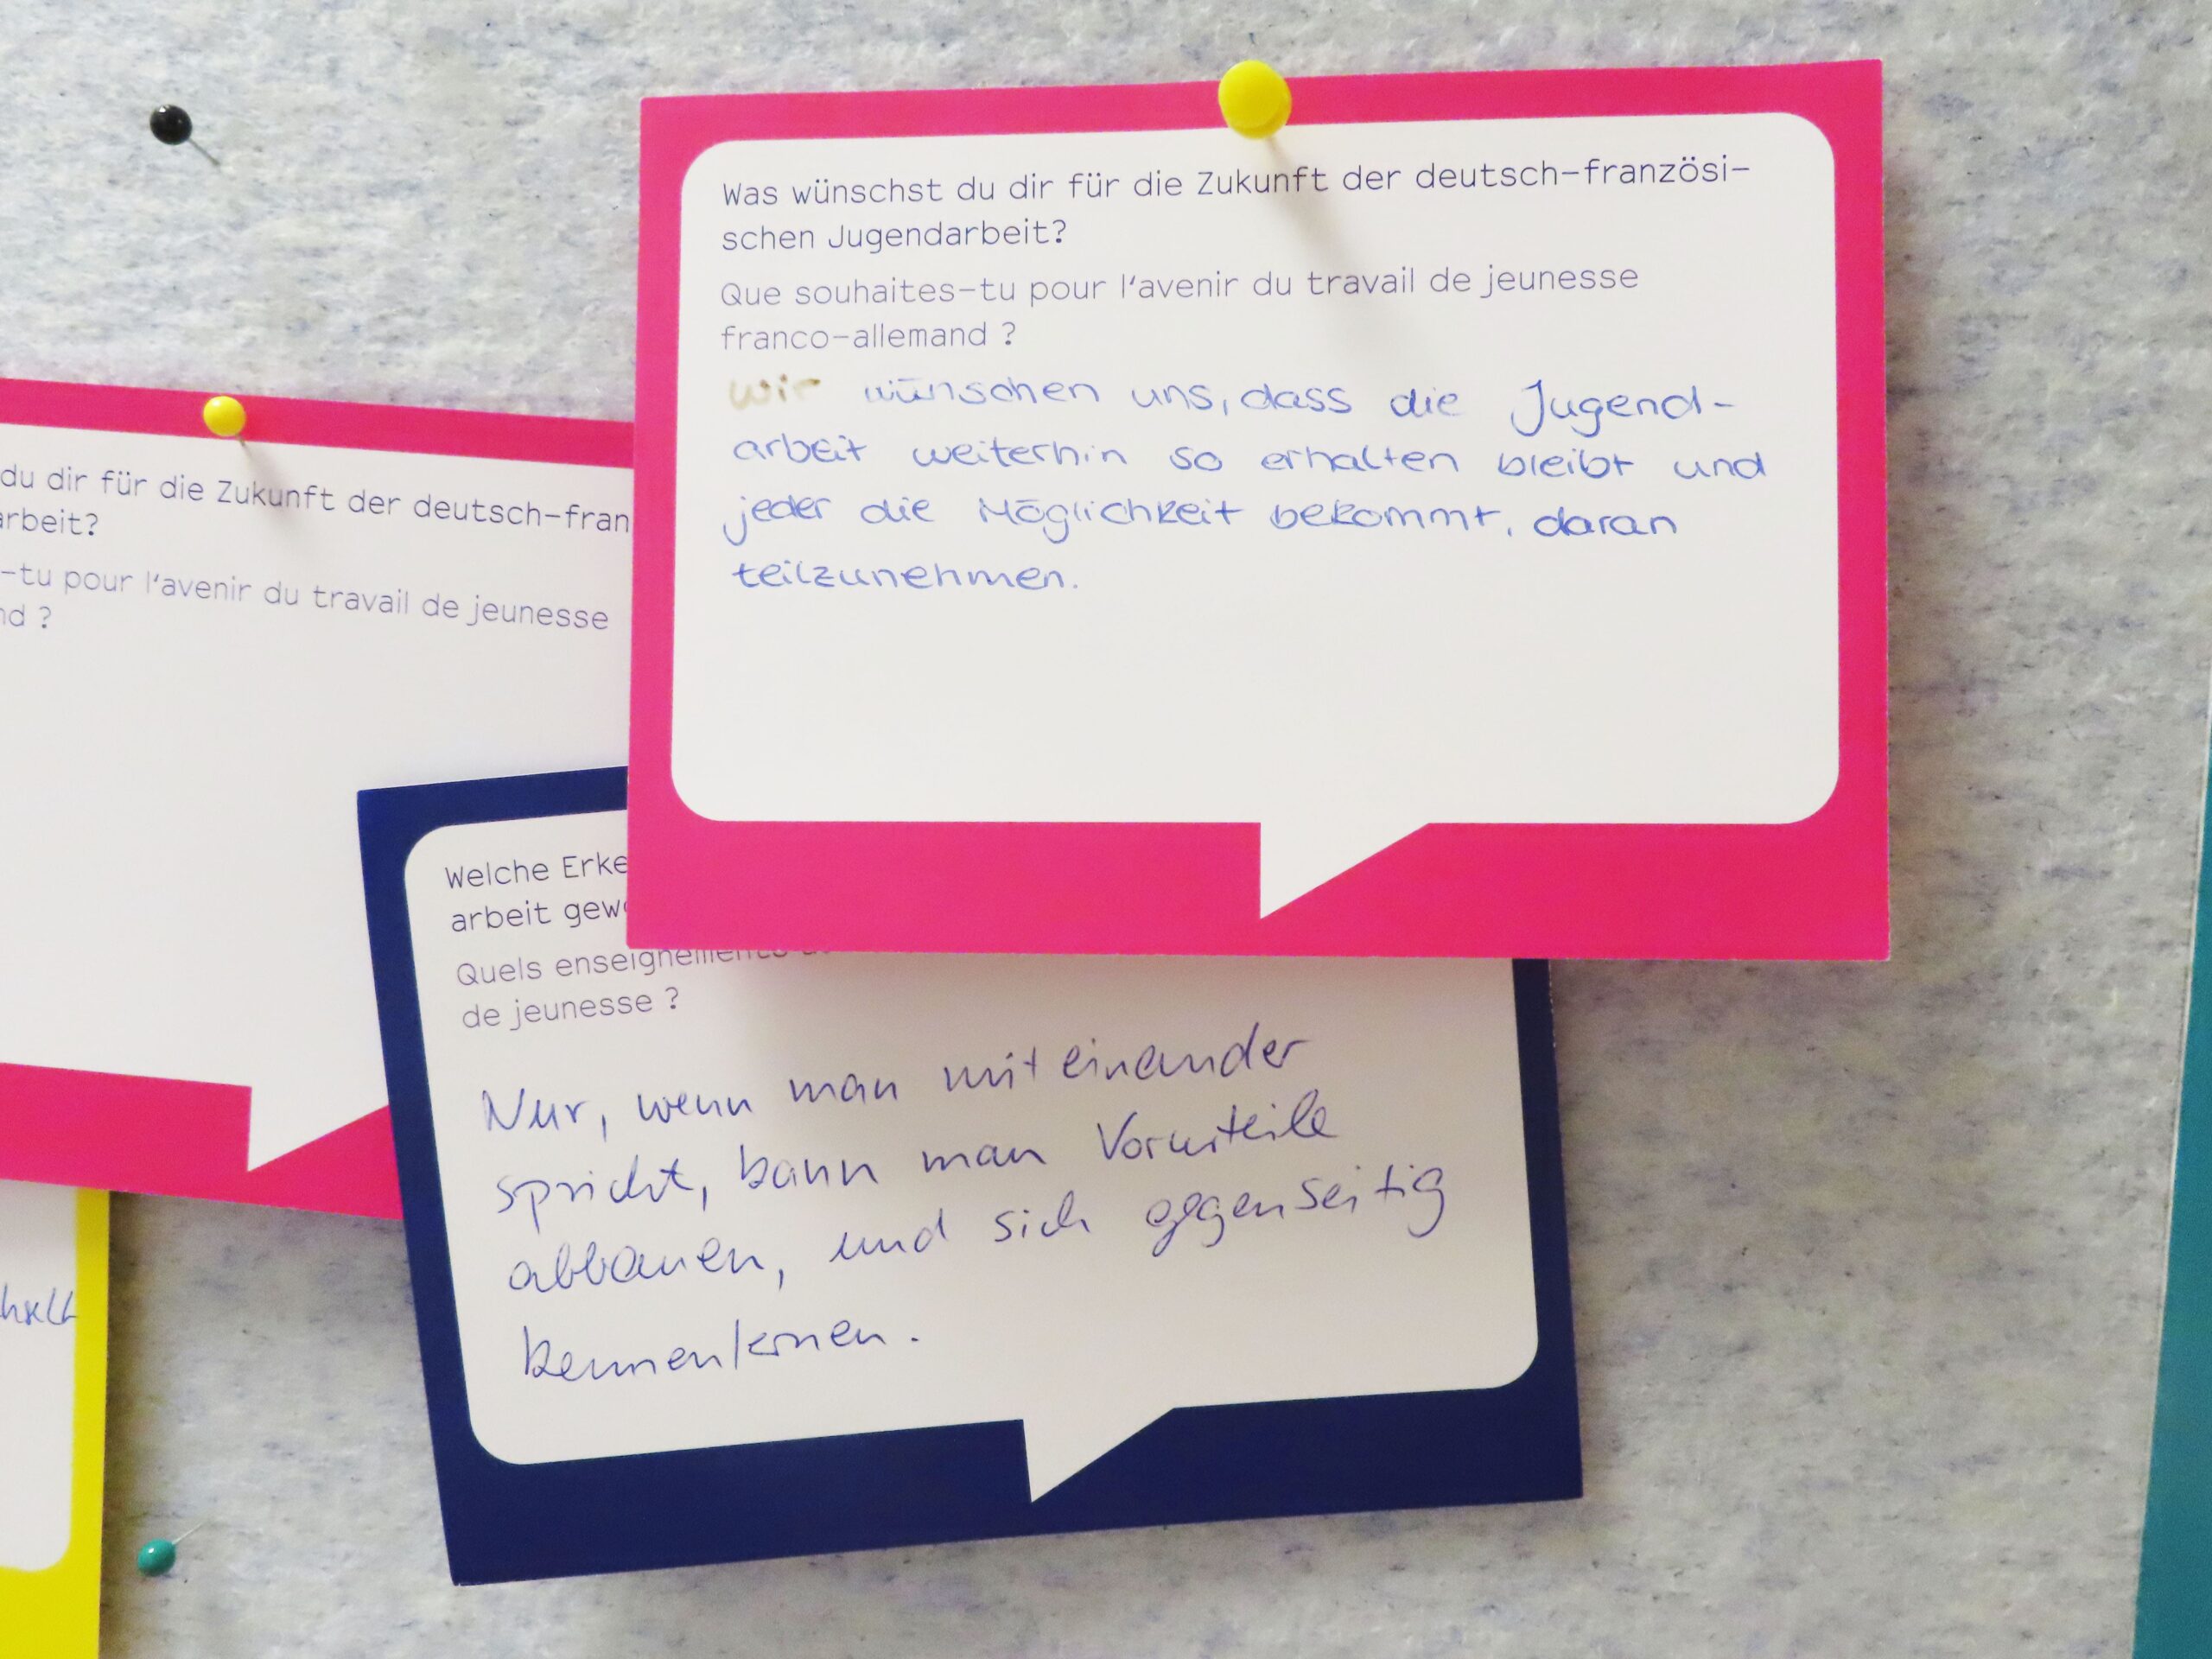 Was wünschst du dir für die Zukunft der deutsch-französi-
schen Jugendarbeit?
Que souhaites-tu pour l'avenir du travail de jeunesse
franco-allemand ?
wir wünschen uns, dass die Jugend-
arbeit weiterhin so erhalten bleibt und
jeder die Möglichkeit bekommt, daran
teilzunehmen.
du dir für die Zukunft der deutsch-fran
arbeit?
-tu pour l'avenir du travail de jeunesse
nd ?
Welche Erke
arbeit gew
Quels enseignements
de jeunesse ?
Nur, wenn man miteinander
spricht, kann man Vorurteile
abbauen, und sich gegenseitig
kennenlernen.